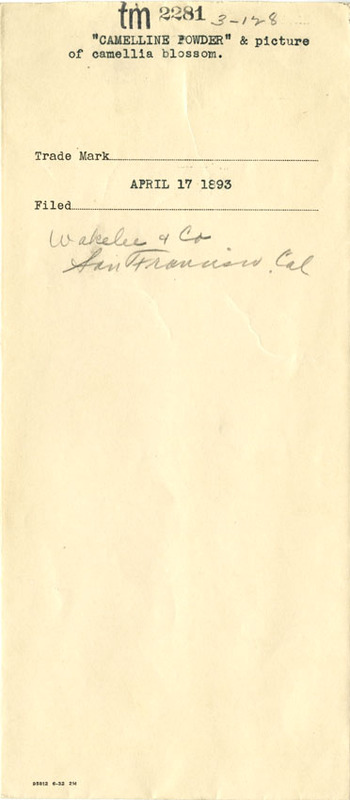 tm 2281 3-128
"CAMELLINE POWDER" & picture
of camellia blossom.
Trade Mark
APRIL 17 1893
Filed
Wakelee & Co
San Francisco, Cal